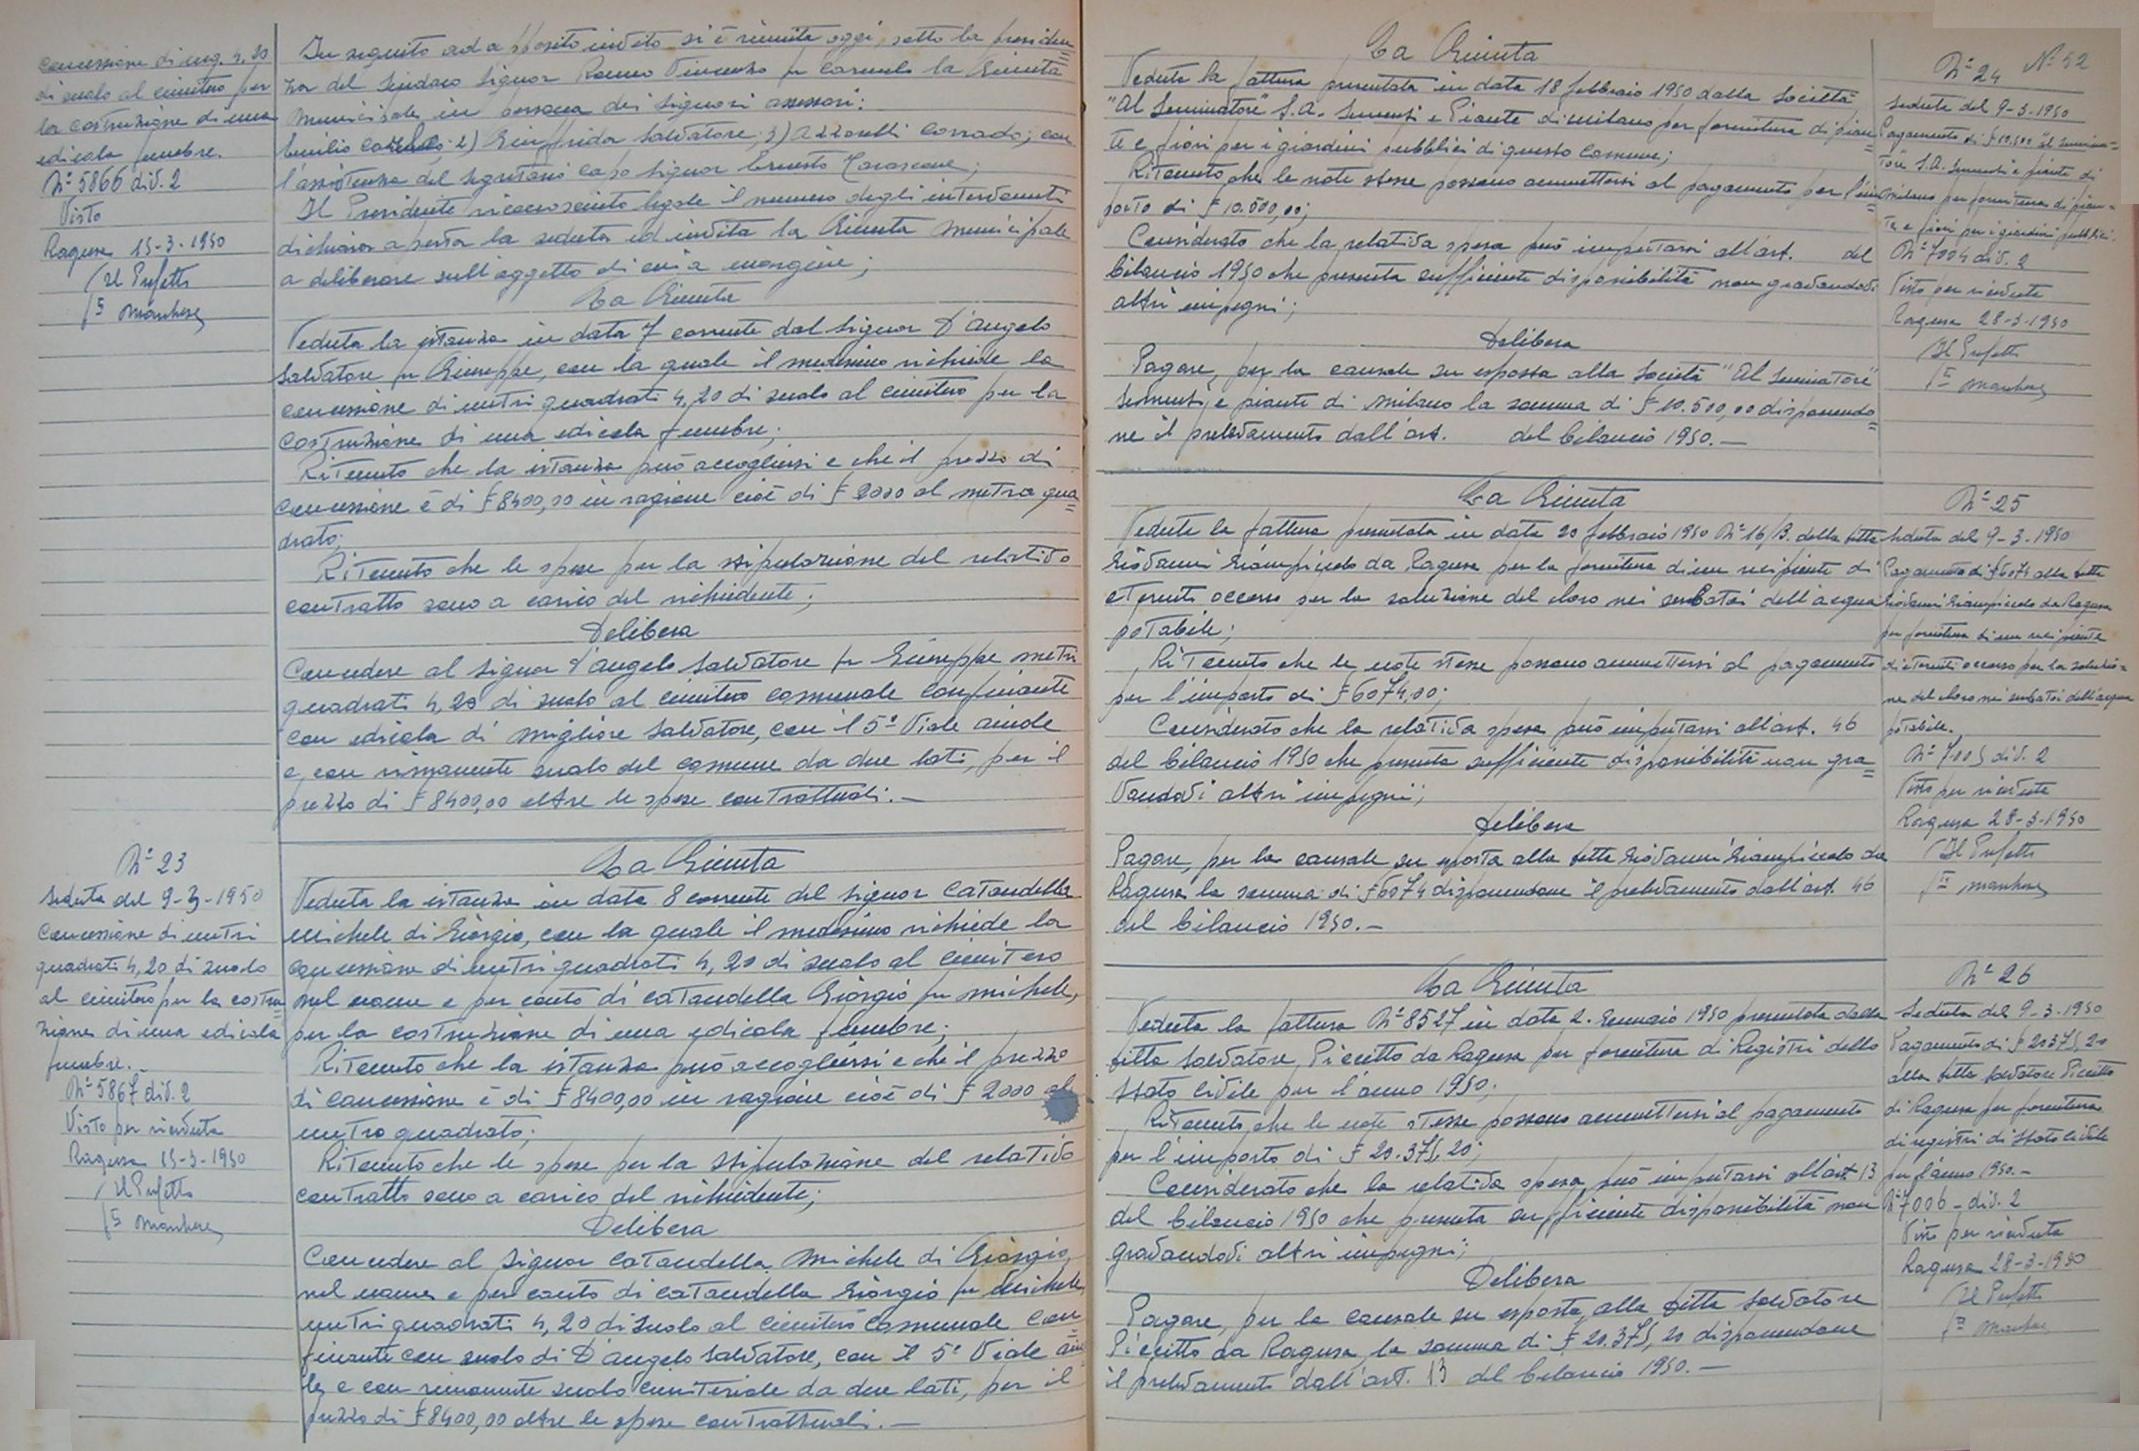 concessione di mq. 4,20
di suolo al cimitero per
la costruzione di una
edicola funebre.
N° 5866 div. 2
Visto
Ragusa 15-3-1950
Il Prefetto
In seguito ad apposito invito si è riunita oggi, sotto la presiden=
za del Sindaco Signor Romeo Vincenzo fu Carmelo la Giunta
Municipale, in persona dei Signori assessori:
2) Giunfrida Salvatore; 3) Azzarelli Corrado; con
l'assistenza del Segretario Capo Signor Ernesto
Il Presidente riconosciuto legale il numero degli intervenuti
dichiara aperta la seduta ed invita la Giunta Municipale
a deliberare sull'oggetto di cui a margine;
La Giunta
Veduta la istanza in data 7 corrente del Signor D'Angelo
Salvatore fu Giuseppe, con la quale il medesimo richiede la
concessione di metri quadrati 4,20 di suolo al cimitero per la
costruzione di una edicola funebre;
Ritenuto che la istanza può accogliersi e che il prezzo di
concessione è di £ 8400,00 in ragione cioè di £ 2000 al metro qua=
drato;
Ritenuto che le spese per la stipulazione del relativo
contratto sono a carico del richiedente;
Delibera
Concedere al Signor D'Angelo Salvatore fu Giuseppe metri
quadrati 4,20 di suolo al cimitero comunale confinante
con edicola di Migliore Salvatore, con il 5° Viale
e con rimanente suolo del comune da due lati, per il
prezzo di £ 8400,00 oltre le spese contrattuali.—
N° 23
Seduta del 9-3-1950
Concessione di metri
quadrati 4,20 di suolo
al cimitero per la costru=
zione di una edicola
funebre.
N° 5867 div. 2
Visto per ricevuta
Ragusa 15-3-1950
Il Prefetto
La Giunta
Veduta la istanza in data 8 corrente del Signor Cataudella
Michele di Giorgio, con la quale il medesimo richiede la
concessione di metri quadrati 4,20 di suolo al cimitero
nel nome e per conto di Cataudella Giorgio fu Michele,
per la costruzione di una edicola funebre;
Ritenuto che la istanza può accogliersi e che il prezzo
di concessione è di £ 8400,00 in ragione cioè di £ 2000 al
metro quadrato;
Ritenuto che le spese per la stipulazione del relativo
contratto sono a carico del richiedente;
Delibera
Concedere al Signor Cataudella Michele di Giorgio,
nel nome e per conto di Cataudella Giorgio fu Michele
metri quadrati 4,20 di suolo al cimitero comunale con=
finante con suolo di D'Angelo Salvatore, con il 5° Viale
e con rimanente suolo cimiteriale da due lati, per il
prezzo di £ 8400,00 oltre le spese contrattuali.—
La Giunta
Veduta la fattura presentata in data 18 febbraio 1950 dalla Società
"Al Seminatore" S.A. Sementi e Piante di Milano per fornitura di pian=
te e fiori per i giardini pubblici di questo Comune;
Ritenuto che le note stesse possono ammettersi al pagamento per l'im=
porto di £ 10.500,00;
Considerato che la relativa spesa può imputarsi all'art. del
bilancio 1950 che presenta sufficiente disponibilità non gravandovi
altri impegni;
Delibera
Pagare, per la causale su esposta alla Società "Al Seminatore"
Sementi e piante di Milano la somma di £ 10.500,00 disponendo=
ne il prelevamento dall'art. del bilancio 1950.—
N° 24 N° 52
Seduta del 9-3-1950
Pagamento di £ 10.500 "Al Semina=
tore" S.A. Sementi e piante di
Milano per fornitura di pian=
te e fiori per i giardini pubblici.
N° 7004 div. 2
Visto per ricevuta
Ragusa 28-3-1950
Il Prefetto
La Giunta
Veduta la fattura presentata in data 20 febbraio 1950 N° 16/B. della Ditta
Giovanni Giampiccolo da Ragusa per la fornitura di un recipiente di
eternit occorso per la soluzione del cloro nei serbatoi dell'acqua
potabile;
Ritenuto che le note stesse possono ammettersi al pagamento
per l'importo di £ 6074,00;
Considerato che la relativa spesa può imputarsi all'art. 46
del bilancio 1950 che presenta sufficiente disponibilità non gra=
vandovi altri impegni;
Delibera
Pagare, per la causale su esposta alla Ditta Giovanni Giampiccolo da
Ragusa la somma di £ 6074 disponendone il prelevamento dall'art. 46
del bilancio 1950.—
N° 25
Seduta del 9-3-1950
Pagamento di £ 6074 alla Ditta
Giovanni Giampiccolo da Ragusa
per fornitura di un recipiente
di eternit occorso per la soluzio=
ne del cloro nei serbatoi dell'acqua
potabile.
N° 7005 div. 2
Visto per ricevuta
Ragusa 28-3-1950
Il Prefetto
La Giunta
Veduta la fattura N° 8527 in data 2. Gennaio 1950 presentata dalla
Ditta Salvatore Piccitto da Ragusa per fornitura di Registri dello
Stato Civile per l'anno 1950;
Ritenuto che le note stesse possono ammettersi al pagamento
per l'importo di £ 20.375,20;
Considerato che la relativa spesa può imputarsi all'art. 13
del bilancio 1950 che presenta sufficiente disponibilità non
gravandovi altri impegni;
Delibera
Pagare, per la causale su esposta, alla Ditta Salvatore
Piccitto da Ragusa, la somma di £ 20.375,20 disponendone
il prelevamento dall'art. 13 del bilancio 1950.—
N° 26
Seduta del 9-3-1950
Pagamento di £ 20375,20
alla Ditta Salvatore Piccitto
di Ragusa per fornitura
di registri di Stato Civile
per l'anno 1950.—
N° 7006 - div. 2
Visto per ricevuta
Ragusa 28-3-1950
Il Prefetto